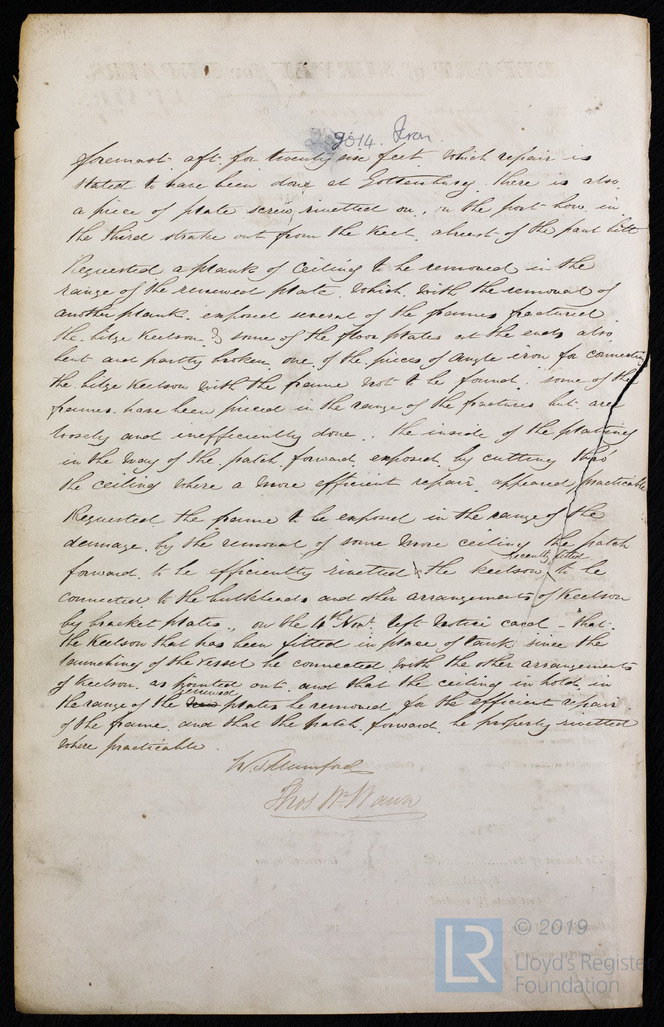 9614. Iron
foremost aft for twenty six feet. Which repair is
stated to have been done at Gottenburg. there is also
a piece of plate screw rivetted on, on the port bow in
the third strake out from the keel, abreast of the paul bitt
Requested a plank of ceiling to be removed in the
range of the renewed plate. Which with the removal of
another plank exposed several of the frames fractured
the bilge keelson & some of the floor plates at the ends also
bent and partly broken one of the pieces of angle iron for connecting
the bilge keelson with the frame not to be found. some of the
frames have been pieced in the range of the fractures but are
loosely and inefficiently done. the inside of the plating
in the way of the patch forward exposed by cutting thro'
the ceiling where a more efficient repair appeared practicable
Requested the frame to be exposed in the range of the
damage by the removal of some more ceiling the patch
forward to be efficiently rivetted & the keelson recently fitted to be
connected to the bulkheads and other arrangements of keelson
by bracket plates., on the 10th Novr. left notice card - "that
the keelson that has been fitted in place of tank since the
launching of the vessel be connected with the other arrangements
of keelson as pointed out and that the ceiling in hold in
the range of the renewed plates be removed for the efficient repair
of the frame and that the patch forward be properly rivetted
where practicable.
W. Mumford
Thos. Wm. Wawn
LR © 2019
Lloyd's Register
Foundation